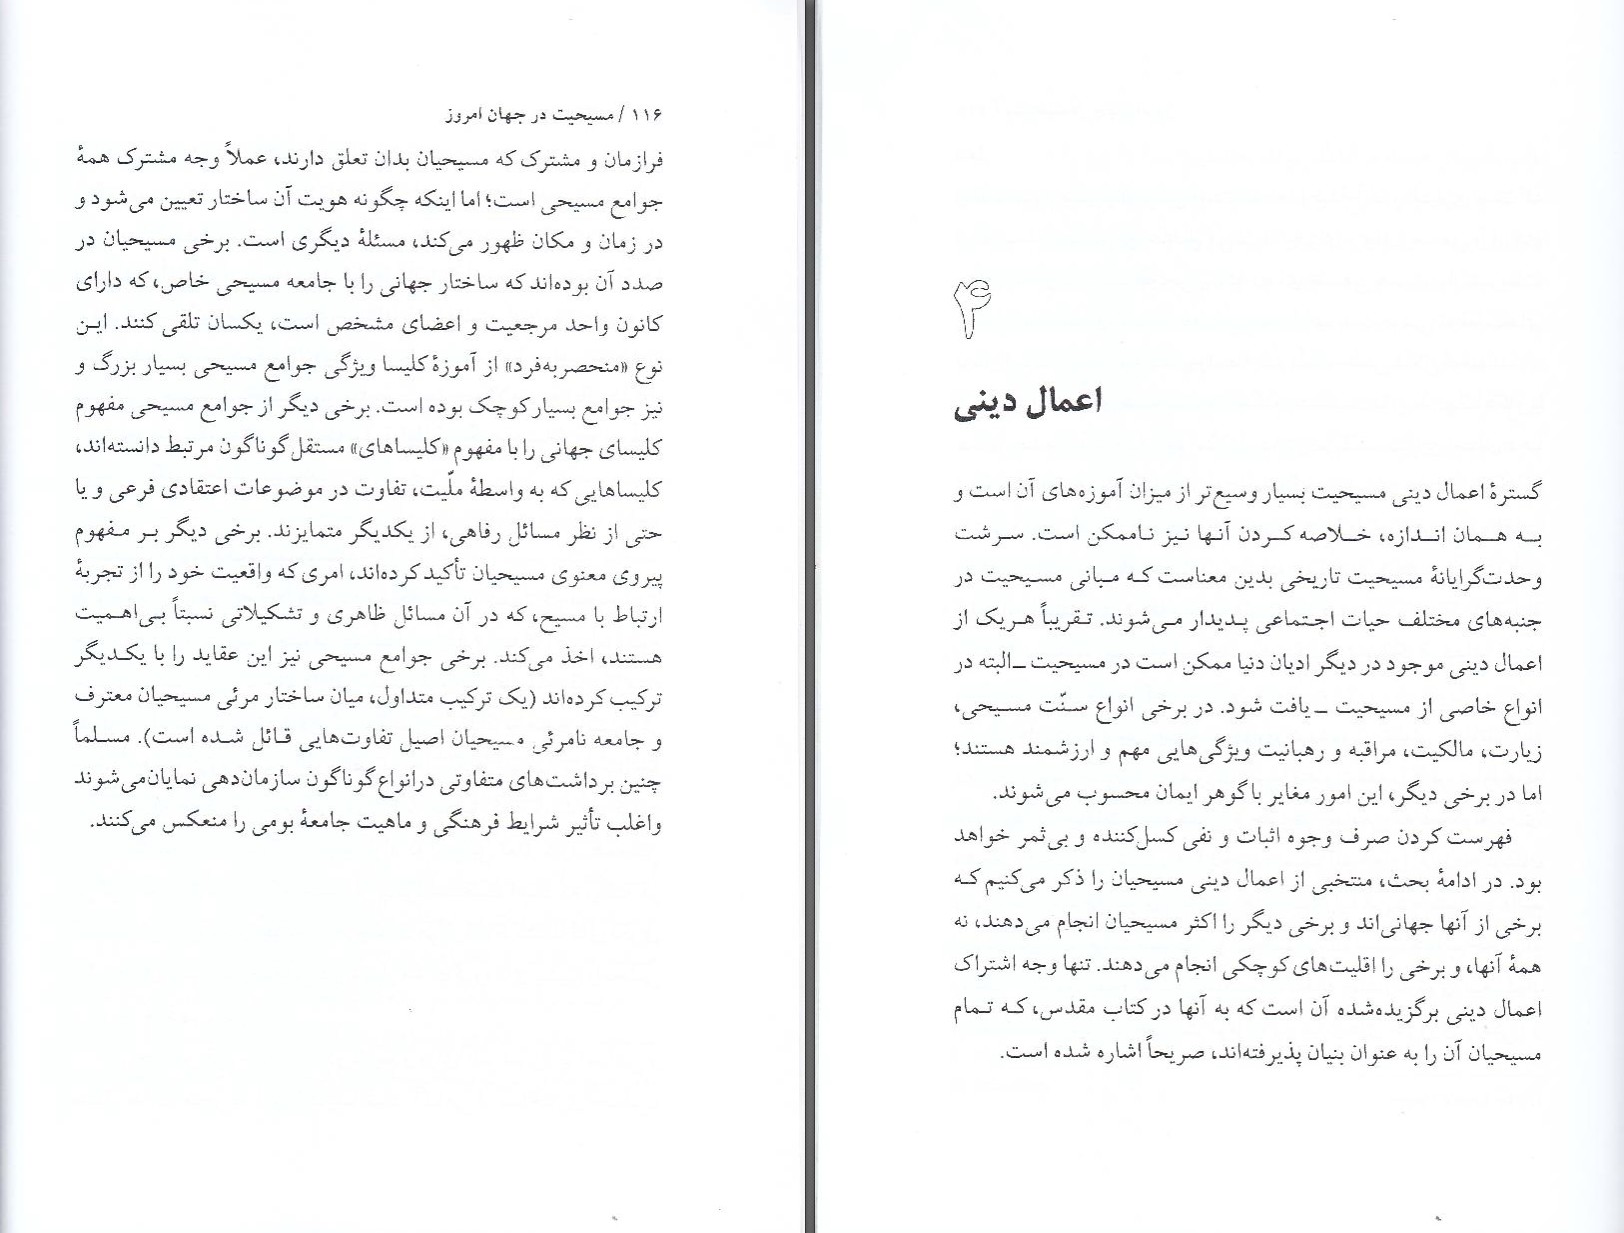 ۱۱۶ / مسیحیت در جهان امروز
فرازمان و مشترک که مسیحیان بدان تعلق دارند، عملاً وجه مشترک همهٔ
جوامع مسیحی است؛ اما اینکه چگونه هویت آن ساختار تعیین می‌شود و
در زمان و مکان ظهور می‌کند، مسئلهٔ دیگری است. برخی مسیحیان در
صدد آن بوده‌اند که ساختار جهانی را با جامعه مسیحی خاص، که دارای
کانون واحد مرجعیت و اعضای مشخص است، یکسان تلقی کنند. این
نوع «منحصربه‌فرد» از آموزهٔ کلیسا ویژگی جوامع مسیحی بسیار بزرگ و
نیز جوامع بسیار کوچک بوده است. برخی دیگر از جوامع مسیحی مفهوم
کلیسای جهانی را با مفهوم «کلیساهای» مستقل گوناگون مرتبط دانسته‌اند،
کلیساهایی که به واسطهٔ ملّیت، تفاوت در موضوعات اعتقادی فرعی و یا
حتی از نظر مسائل رفاهی، از یکدیگر متمایزند. برخی دیگر بر مفهوم
پیروی معنوی مسیحیان تأکید کرده‌اند، امری که واقعیت خود را از تجربهٔ
ارتباط با مسیح، که در آن مسائل ظاهری و تشکیلاتی نسبتاً بی‌اهمیت
هستند، اخذ می‌کند. برخی جوامع مسیحی نیز این عقاید را با یکدیگر
ترکیب کرده‌اند (یک ترکیب متداول، میان ساختار مرئی مسیحیان معترف
و جامعه نامرئی مسیحیان اصیل تفاوت‌هایی قائل شده است). مسلماً
چنین برداشت‌های متفاوتی درانواع گوناگون سازمان‌دهی نمایان‌می‌شوند
واغلب تأثیر شرایط فرهنگی و ماهیت جامعهٔ بومی را منعکس می‌کنند.
۴
اعمال دینی
گسترهٔ اعمال دینی مسیحیت بسیار وسیع‌تر از میزان آموزه‌های آن است و
به همان اندازه، خلاصه کردن آنها نیز ناممکن است. سرشت
وحدت‌گرایانهٔ مسیحیت تاریخی بدین معناست که مبانی مسیحیت در
جنبه‌های مختلف حیات اجتماعی پدیدار می‌شوند. تقریباً هریک از
اعمال دینی موجود در دیگر ادیان دنیا ممکن است در مسیحیت ـ البته در
انواع خاصی از مسیحیت ـ یافت شود. در برخی انواع سنّت مسیحی،
زیارت، مالکیت، مراقبه و رهبانیت ویژگی‌هایی مهم و ارزشمند هستند؛
اما در برخی دیگر، این امور مغایر با گوهر ایمان محسوب می‌شوند.
فهرست کردن صرف وجوه اثبات و نفی کسل‌کننده و بی‌ثمر خواهد
بود. در ادامهٔ بحث، منتخبی از اعمال دینی مسیحیان را ذکر می‌کنیم که
برخی از آنها جهانی‌اند و برخی دیگر را اکثر مسیحیان انجام می‌دهند، نه
همهٔ آنها، و برخی را اقلیت‌های کوچکی انجام می‌دهند. تنها وجه اشتراک
اعمال دینی برگزیده‌شده آن است که به آنها در کتاب مقدس، که تمام
مسیحیان آن را به عنوان بنیان پذیرفته‌اند، صریحاً اشاره شده است.